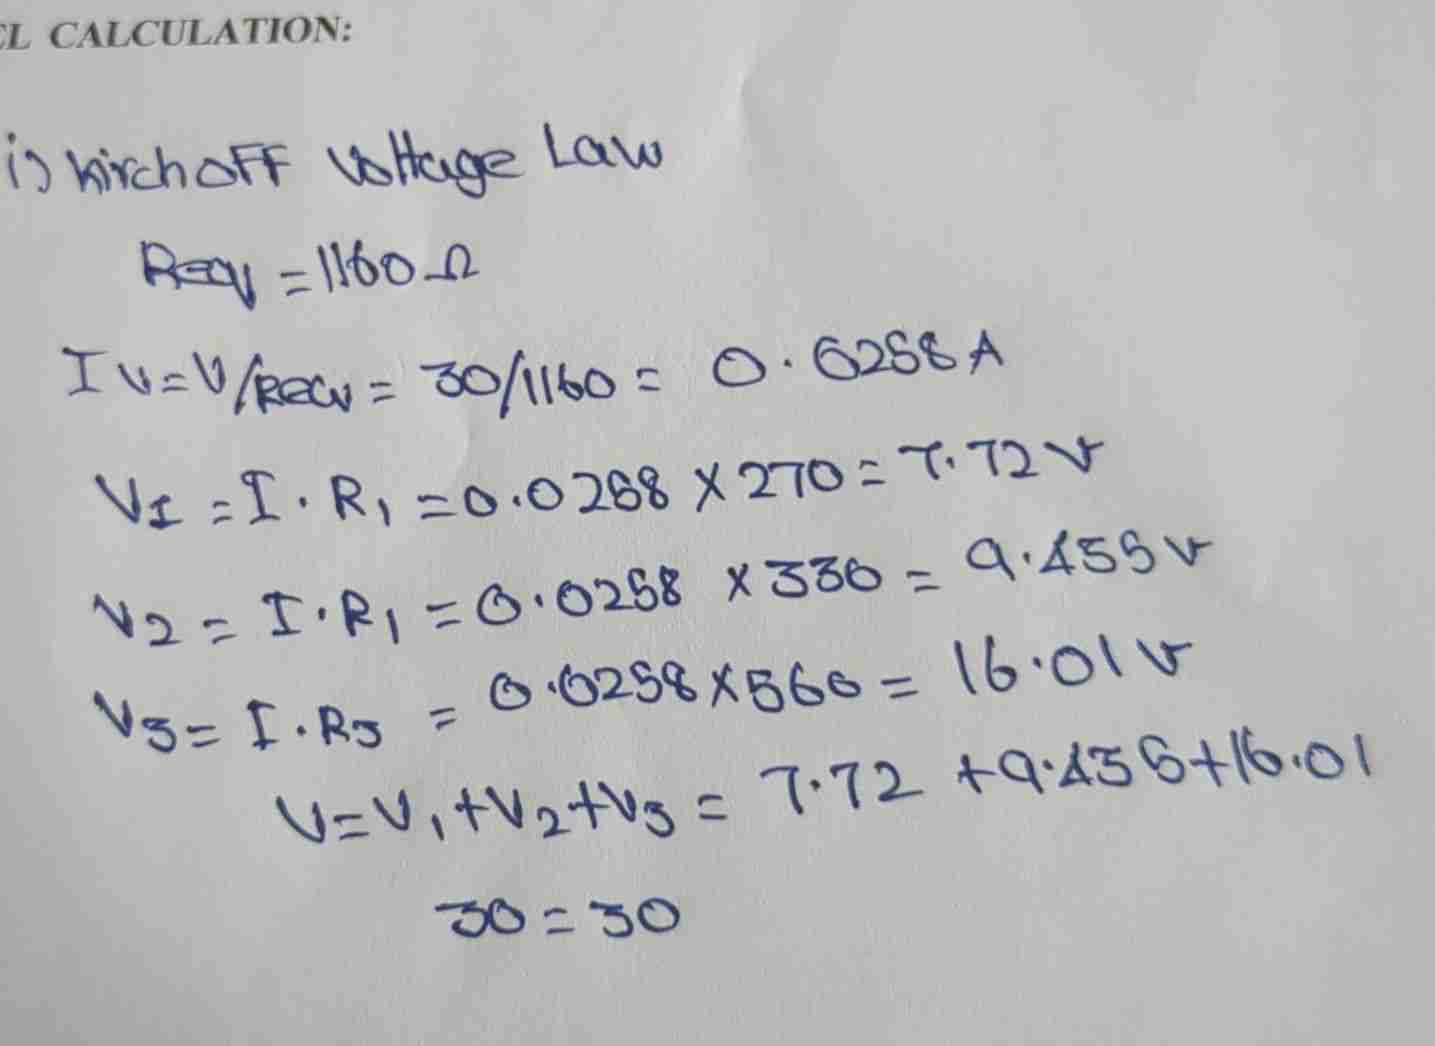 EL CALCULATION:
i) Kirchoff Voltage Law
Req = 1160 Ω
I v = V/Req = 30/1160 = 0.0258 A
V1 = I . R1 = 0.0268 X 270 = 7.72 v
V2 = I . R1 = 0.0258 X 330 = 9.455 v
V3 = I . R3 = 0.0258 X 560 = 16.01 v
V = V1 + V2 + V3 = 7.72 + 9.455 + 16.01
30 = 30